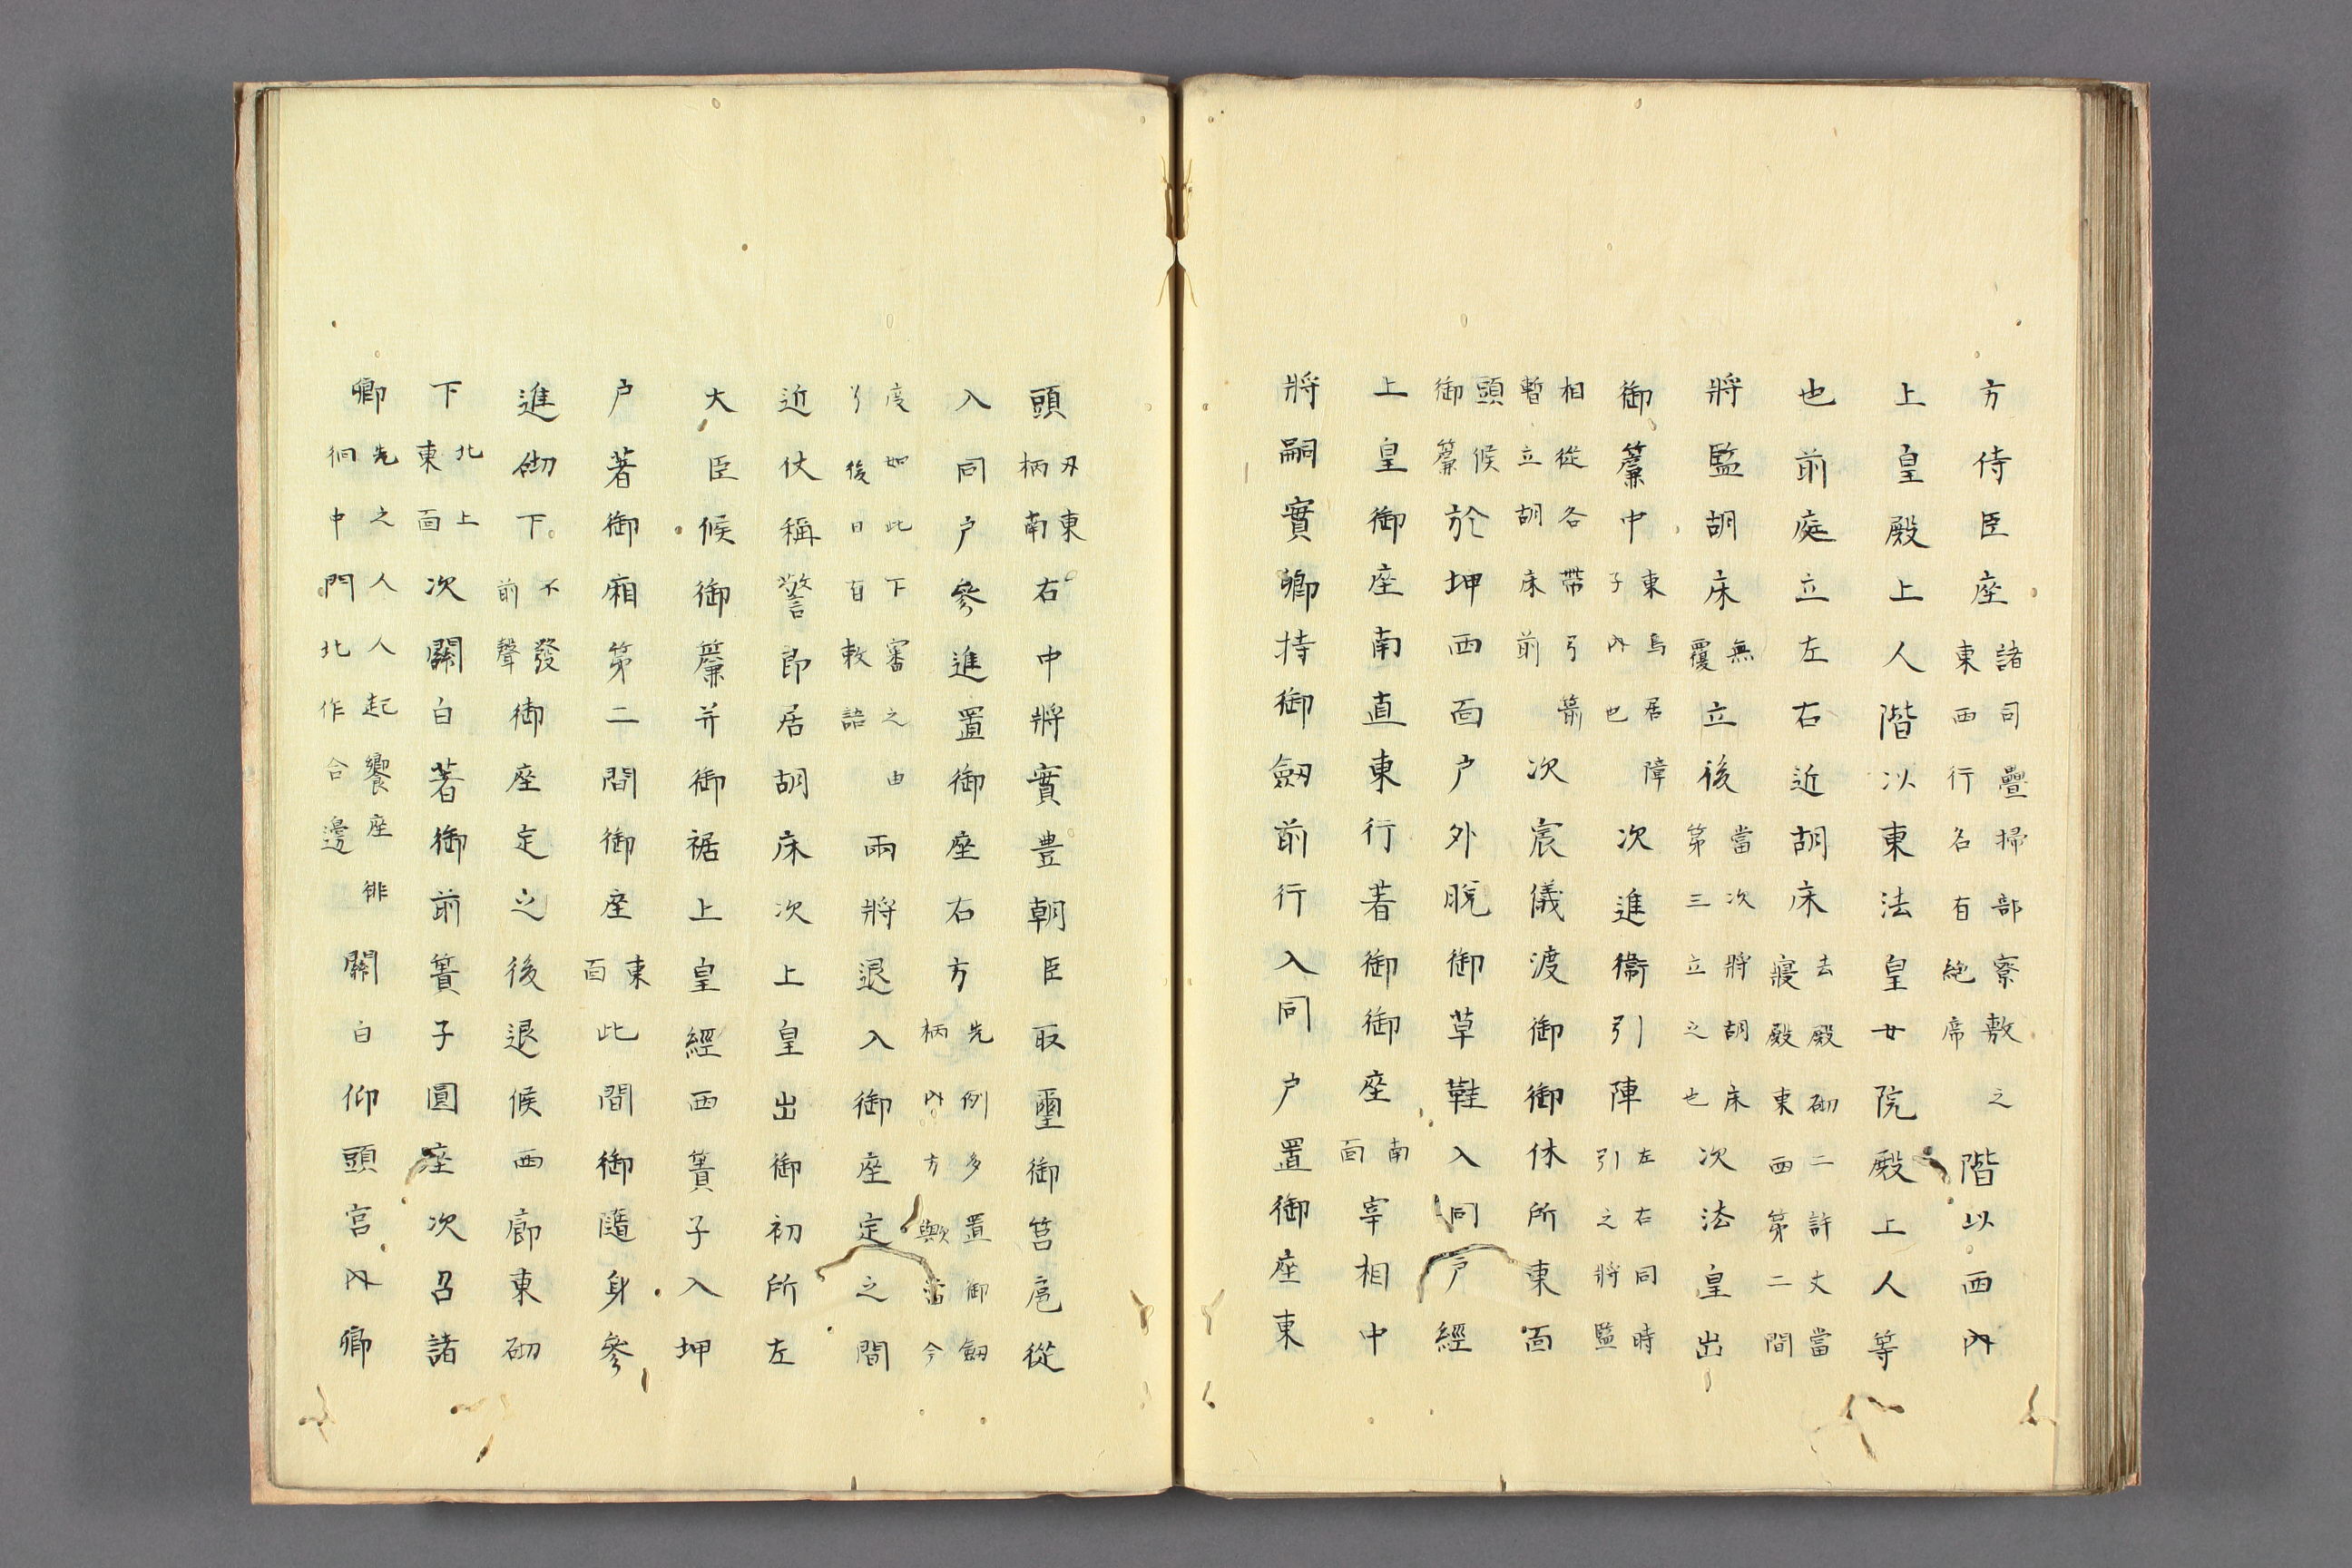 方侍臣座諸司疊掃部寮敷之東西行各有絶席階以西内
上皇殿上人階以東法皇女院殿上人等
也前庭立左右近胡床去殿砌二許丈當寢殿東西第二間
將監胡床無覆立後當次將胡床第三立之也次法皇出
御簾中東烏居障子内也次進衞引陣左右同時引之將監
相從各帶弓箭暫立胡床前次宸儀渡御御休所東面
頭候御簾於坤西面户外脱御草鞋入同户經
上皇御座南直東行著御御座南面宰相中
將嗣實卿持御劔前行入同户置御座東
頭刃東柄南右中將實豊朝臣取璽御筥扈從
入同户參進置御座右方先例多置御劔柄内方歟當今
度如此下審之由引後日有敕語兩將退入御座定之間
近仗稱警即居胡床次上皇出御初所左
大臣候御簾并御裾上皇經西簀子入坤
户著御廂第二間御座東面此間御隨身參
進砌下不發前聲御座定之後退候西廊東砌
下北上東面次關白著御前簀子圓座次召諸
卿先之人人起饗座徘徊中門北作合邊關白仰頭宮内卿